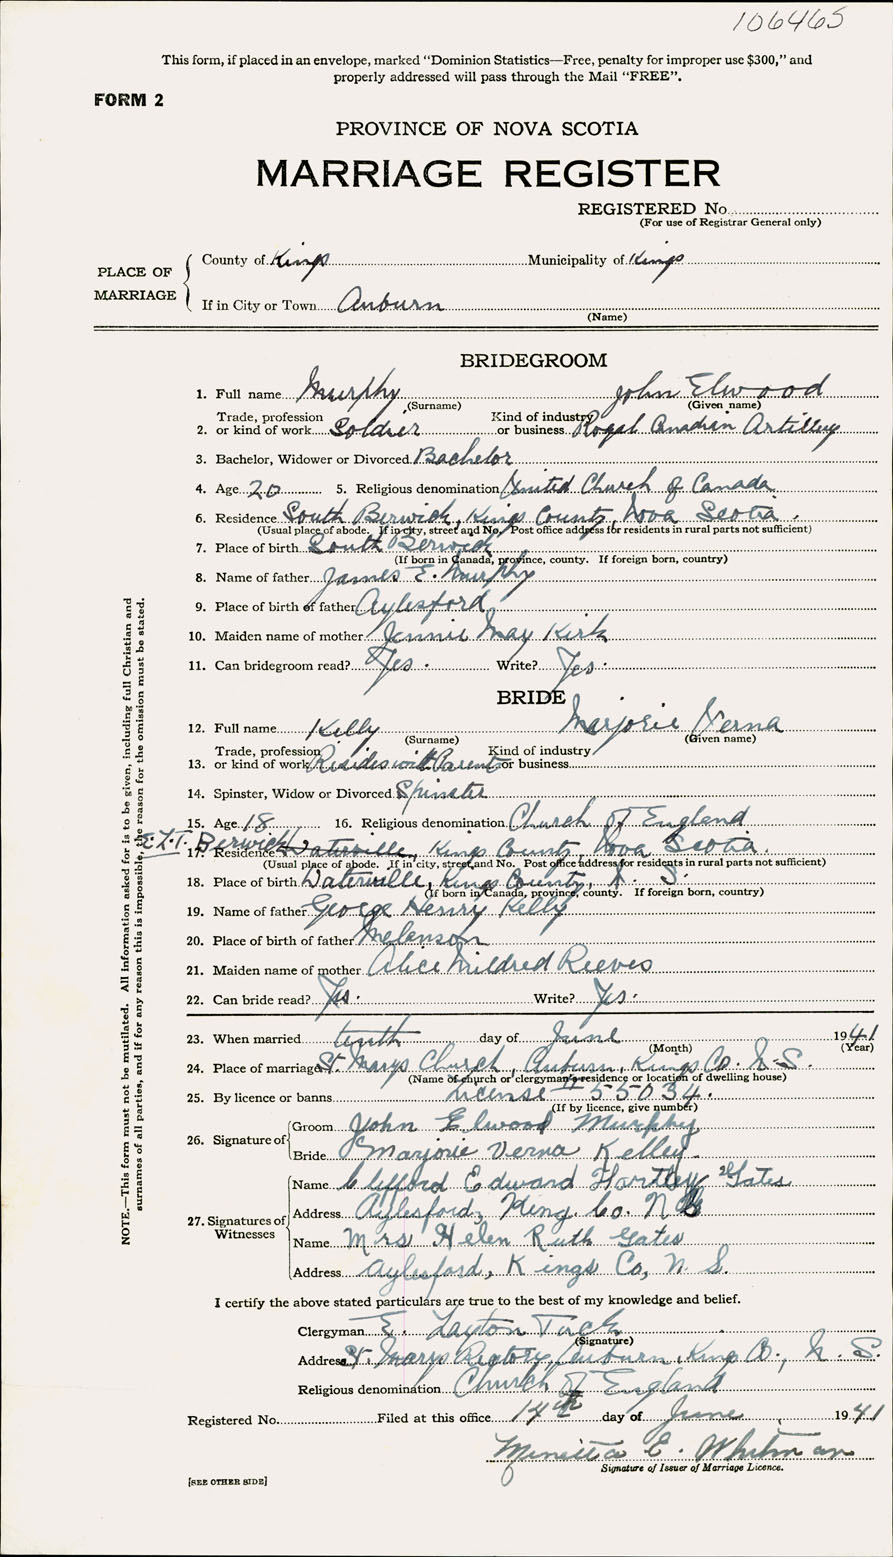 106465
This form, if placed in an envelope, marked "Dominion Statistics—Free, penalty for improper use $300," and
properly addressed will pass through the Mail "FREE".
FORM 2
PROVINCE OF NOVA SCOTIA
MARRIAGE REGISTER
REGISTERED No.
(For use of Registrar General only)
PLACE OF MARRIAGE
County of Kings Municipality of Kings
If in City or Town Auburn
(Name)
BRIDEGROOM
1. Full name Murphy John Elwood
(Surname) (Given name)
2. Trade, profession or kind of work Soldier Kind of industry or business Royal Canadian Artillery
3. Bachelor, Widower or Divorced Bachelor
4. Age 20 5. Religious denomination United Church of Canada
6. Residence South Berwick, Kings County, Nova Scotia.
(Usual place of abode. If in city, street and No. Post office address for residents in rural parts not sufficient)
7. Place of birth South Berwick
(If born in Canada, province, county. If foreign born, country)
8. Name of father James E. Murphy
9. Place of birth of father Aylesford
10. Maiden name of mother Jennie May Kirk
11. Can bridegroom read? Yes. Write? Yes.
BRIDE
12. Full name Kelly Marjorie Verna
(Surname) (Given name)
13. Trade, profession or kind of work Resides with Parents Kind of industry or business
14. Spinster, Widow or Divorced Spinster
15. Age 18 16. Religious denomination Church of England
E.L.T. Berwick
17. Residence Waterville, Kings County, Nova Scotia.
(Usual place of abode. If in city, street and No. Post office address for residents in rural parts not sufficient)
18. Place of birth Waterville, Kings County, N. S.
(If born in Canada, province, county. If foreign born, country)
19. Name of father George Henry Kelly
20. Place of birth of father Melanson
21. Maiden name of mother Alice Mildred Reeves
22. Can bride read? Yes. Write? Yes.
23. When married tenth day of June 1941
(Month) (Year)
24. Place of marriage St. Marys Church, Auburn, Kings Co. N.S.
(Name of church or clergyman's residence or location of dwelling house)
25. By licence or banns license 55034.
(If by licence, give number)
26. Signature of
Groom John Elwood Murphy
Bride Marjorie Verna Kelley.
27. Signatures of Witnesses
Name Clifford Edward Hartley Gates
Address Aylesford, King. Co. N S
Name Mrs Helen Ruth Gates
Address Aylesford, Kings Co, N. S.
I certify the above stated particulars are true to the best of my knowledge and belief.
Clergyman E. Layton Tuck
(Signature)
Address St. Marys Rectory, Auburn, King Co., N. S.
Religious denomination Church of England
Registered No. Filed at this office 14th day of June, 1941
Minetta E. Whitman
Signature of Issuer of Marriage Licence.
[SEE OTHER SIDE]
NOTE.—This form must not be mutilated. All information asked for is to be given, including full Christian and
surnames of all parties, and if for any reason this is impossible, the reason for the omission must be stated.